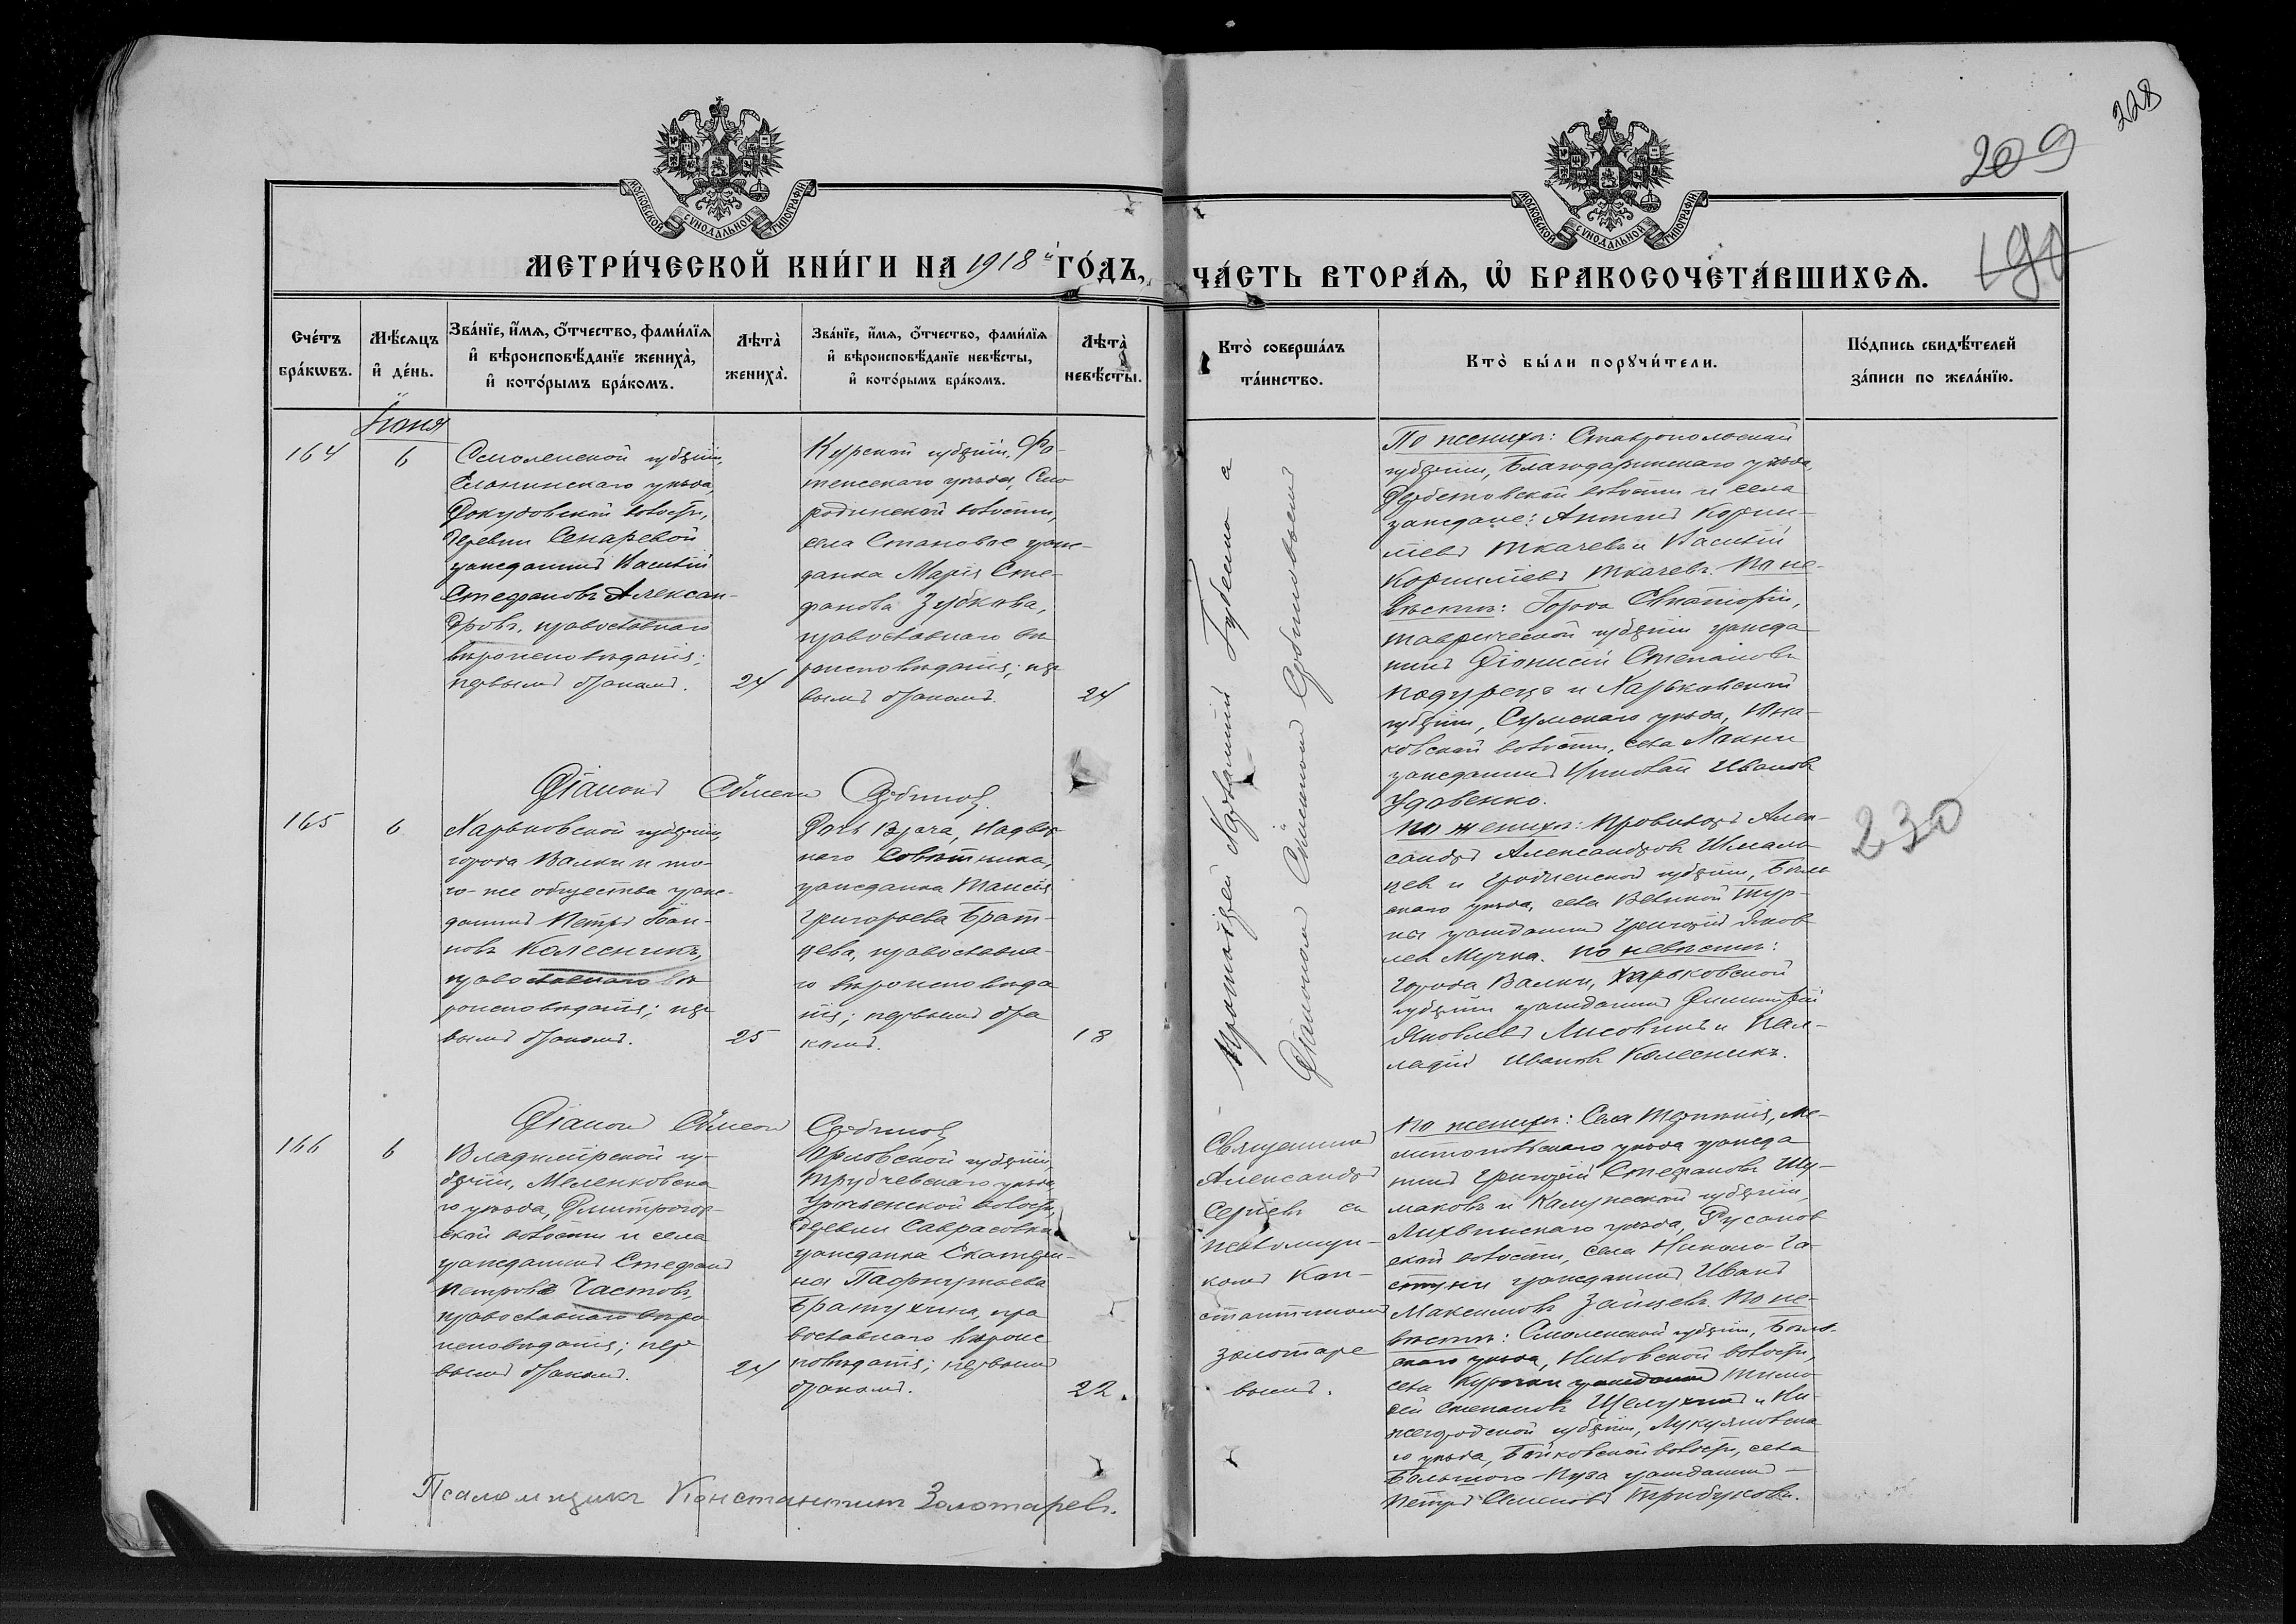 228
209
190
МОСКОВСКОЙ СѴНОДАЛЬНОЙ ТИПОГРАФІИ
МОСКОВСКОЙ СѴНОДАЛЬНОЙ ТИПОГРАФІИ
МЕТРИ́ЧЕСКОЙ КНИ́ГИ НА 1918й ГО́ДЪ,
ЧА́СТЬ ВТОРА́Ѧ, Ѡ҆ БРАКОСОЧЕТА́ВШИХСѦ.
Сче́тъ
бра́кѡвъ.
Мѣ́сѧцъ
и҆ де́нь.
Зва́нїе, и҆́мѧ, ѻ҆́тчество, фами́лїѧ
и҆ вѣроисповѣ́данїе жениха̀,
и҆ кото́рымъ бра́комъ.
Лѣта̀
жениха̀.
Зва́нїе, и҆́мѧ, ѻ҆́тчество, фами́лїѧ
и҆ вѣроисповѣ́данїе невѣ́сты,
и҆ кото́рымъ бра́комъ.
Лѣта̀
невѣ́сты.
Кто̀ соверша́лъ
та́инство.
Кто̀ бы́ли порꙋчи́тели.
По́дпись свидѣ́телей
за́писи по жела́нїю.
Іюня
164
6
Смоленской губерніи,
Ельнинскаго уѣзда,
Докудовской волости,
деревни
гражданинъ Василій
Стефановъ Алексан-
дровъ, православнаго
вѣроисповѣданія;
первымъ бракомъ.
24
Курской губерніи, Фа-
тежскаго уѣзда, Смо
родинской волости,
села Становое граж-
данка Марія Сте-
фанова Зубкова,
православнаго вѣ
роисповѣданія; пер
вымъ бракомъ.
24
Протоіерей
Діаконом Сѵмеономъ
По женихѣ: Ставропольской
губерніи, Благодаринскаго уѣзда,
Дербетовской волости и села
граждане: Антоній Корни-
ліевъ Ткачевъ и Василій
Корниліевъ Ткачевъ. По не-
вѣстѣ: Города Евпаторіи,
Таврической губерніи гражда
нинъ Діонисій Степановъ
и Харьковской
губерніи, Сумскаго уѣзда, Юна-
ковской волости, села
гражданинъ Николай Ивановъ
Удовенко.
Діаконъ Сѵмеонъ
165
6
Харьковской губерніи,
города Валки и то-
го-же общества граж-
данинъ Петръ Іоан-
новъ Колесникъ,
православнаго вѣ
роисповѣданія; пер
вымъ бракомъ.
25
Дочь врача, надвор-
наго совѣтника,
гражданка Таисія
Григорьева Брат-
цева, православна-
го вѣроисповѣда
нія; первымъ бра
комъ.
18
По женихѣ: Провизоръ Алек-
сандръ Александровъ
и Гродненской губерніи, Бѣль
скаго уѣзда, села Великой Тур-
ны гражданинъ Григорій Яков
левъ Мучка. По невѣстѣ:
города Валки, Харьковской
губерніи гражданинъ Димитрій
Яковлевъ Лисовинъ и Пал-
ладій Ивановъ Колесникъ.
230
Діаконъ Сѵмеонъ
166
6
Владимірской гу-
берніи, Меленковска
го уѣзда, Дмитрогор-
ской волости и села
гражданинъ Стефанъ
Петровъ Частовъ
православнаго вѣро
исповѣданія; пер
вымъ бракомъ.
24
Орловской губерніи,
Трубчевскаго уѣзда,
волости,
деревни Саврасовки
гражданка Екатери-
на Пафнутьева
Братухина, пра
вославнаго вѣроис
повѣданія; первымъ
бракомъ.
22.
Священникъ
Александръ
Сергіевъ съ
псаломщи-
комъ Кон-
стантиномъ
Золотаре
вымъ.
По женихѣ: Села Терпѣнія, Ме-
литопольскаго уѣзда гражда
нинъ Григорій Стефановъ Шу-
маковъ и Калужской губерніи,
Лихвинскаго уѣзда, Русанов
ской волости, села Николо-Га-
стуни гражданинъ Иванъ
Максимовъ Зайцевъ. По не-
вѣстѣ: Смоленской губерніи, Бѣль-
скаго уѣзда, волости,
села гражданинъ Тимо
ѳей Степановъ и Ни-
жегородской губерніи, Лукояновска
го уѣзда, волости, села
Большого-Пуза гражданинъ
Петръ Семеновъ Трибусовъ.
Псаломщикъ Константинъ Золотаревъ.